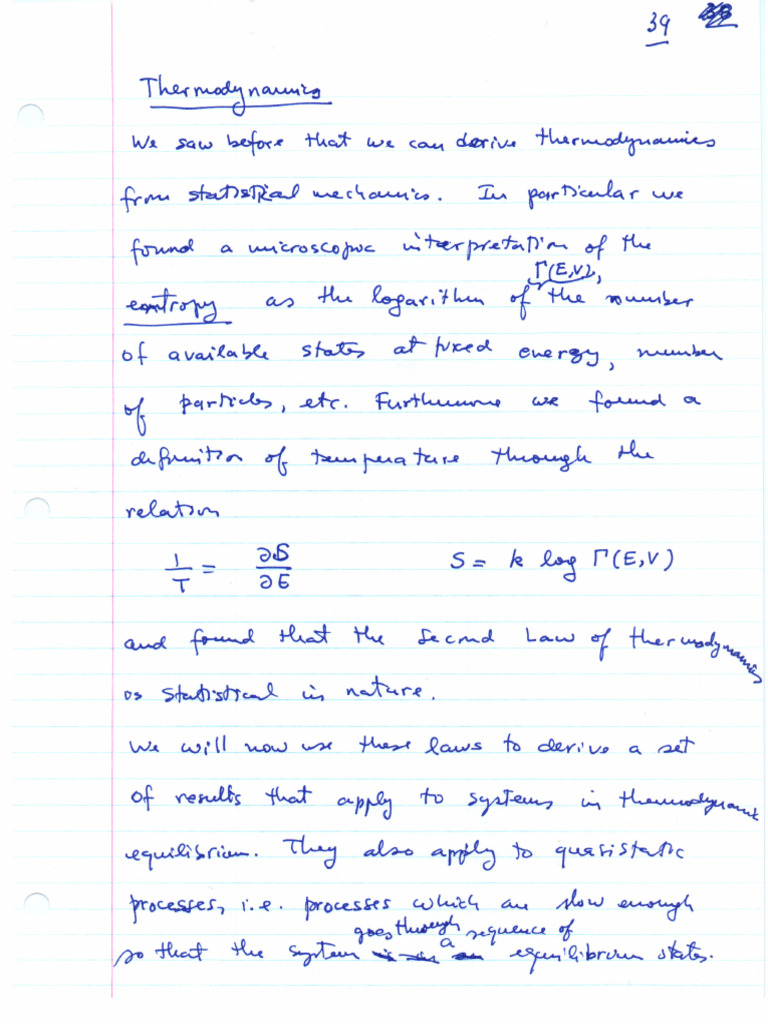 39
Thermodynamics
We saw before that we can derive thermodynamics
from statistical mechanics. In particular we
found a microscopic interpretation of the
Γ(E,V),
entropy as the logarithm of the number
of available states at fixed energy, number
of particles, etc. Furthermore we found a
definition of temperature through the
relation
1/T = ∂S/∂E S = k log Γ(E,V)
and found that the Second Law of thermodynamics
is statistical in nature.
We will now use these laws to derive a set
of results that apply to systems in thermodynamic
equilibrium. They also apply to quasistatic
processes, i.e. processes which are slow enough
goes through a sequence of
so that the system equilibrium states.